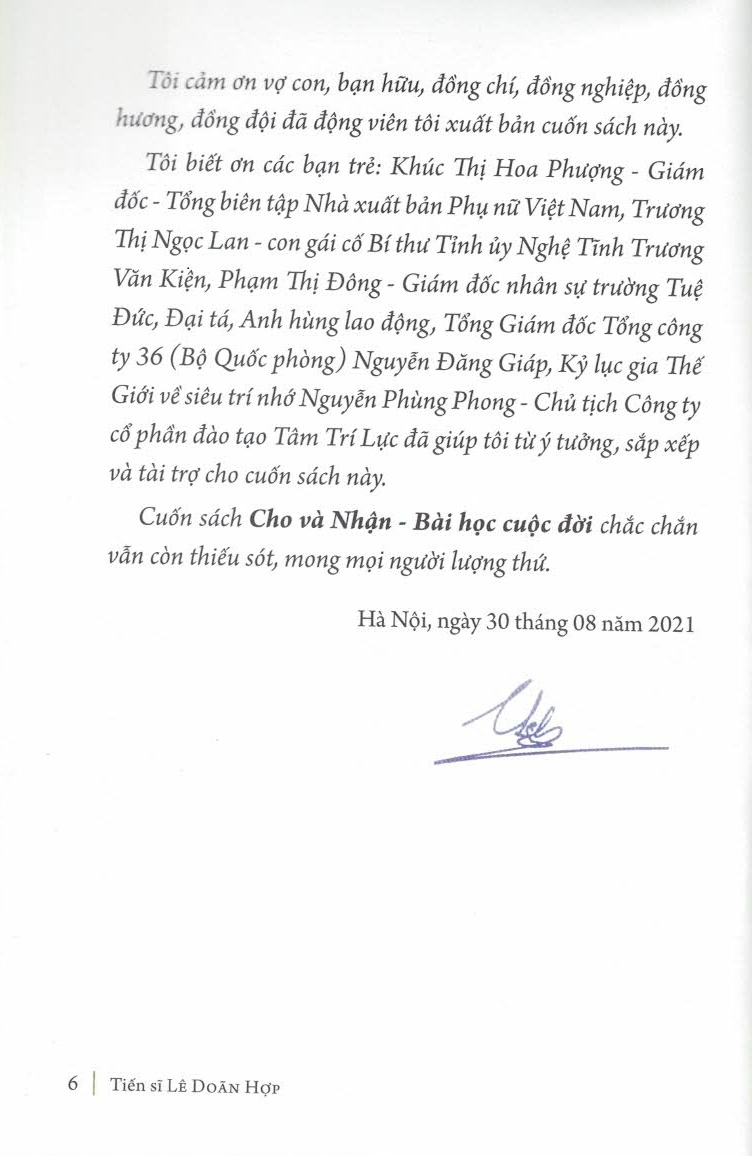 Tôi cảm ơn vợ con, bạn hữu, đồng chí, đồng nghiệp, đồng
hương, đồng đội đã động viên tôi xuất bản cuốn sách này.
Tôi biết ơn các bạn trẻ: Khúc Thị Hoa Phượng - Giám
đốc - Tổng biên tập Nhà xuất bản Phụ nữ Việt Nam, Trương
Thị Ngọc Lan - con gái cố Bí thư Tỉnh ủy Nghệ Tĩnh Trương
Văn Kiện, Phạm Thị Đông - Giám đốc nhân sự trường Tuệ
Đức, Đại tá, Anh hùng lao động, Tổng Giám đốc Tổng công
ty 36 (Bộ Quốc phòng) Nguyễn Đăng Giáp, Kỷ lục gia Thế
Giới về siêu trí nhớ Nguyễn Phùng Phong - Chủ tịch Công ty
cổ phần đào tạo Tâm Trí Lực đã giúp tôi từ ý tưởng, sắp xếp
và tài trợ cho cuốn sách này.
Cuốn sách Cho và Nhận - Bài học cuộc đời chắc chắn
vẫn còn thiếu sót, mong mọi người lượng thứ.
Hà Nội, ngày 30 tháng 08 năm 2021
6 | Tiến sĩ LÊ DOÃN HỢP